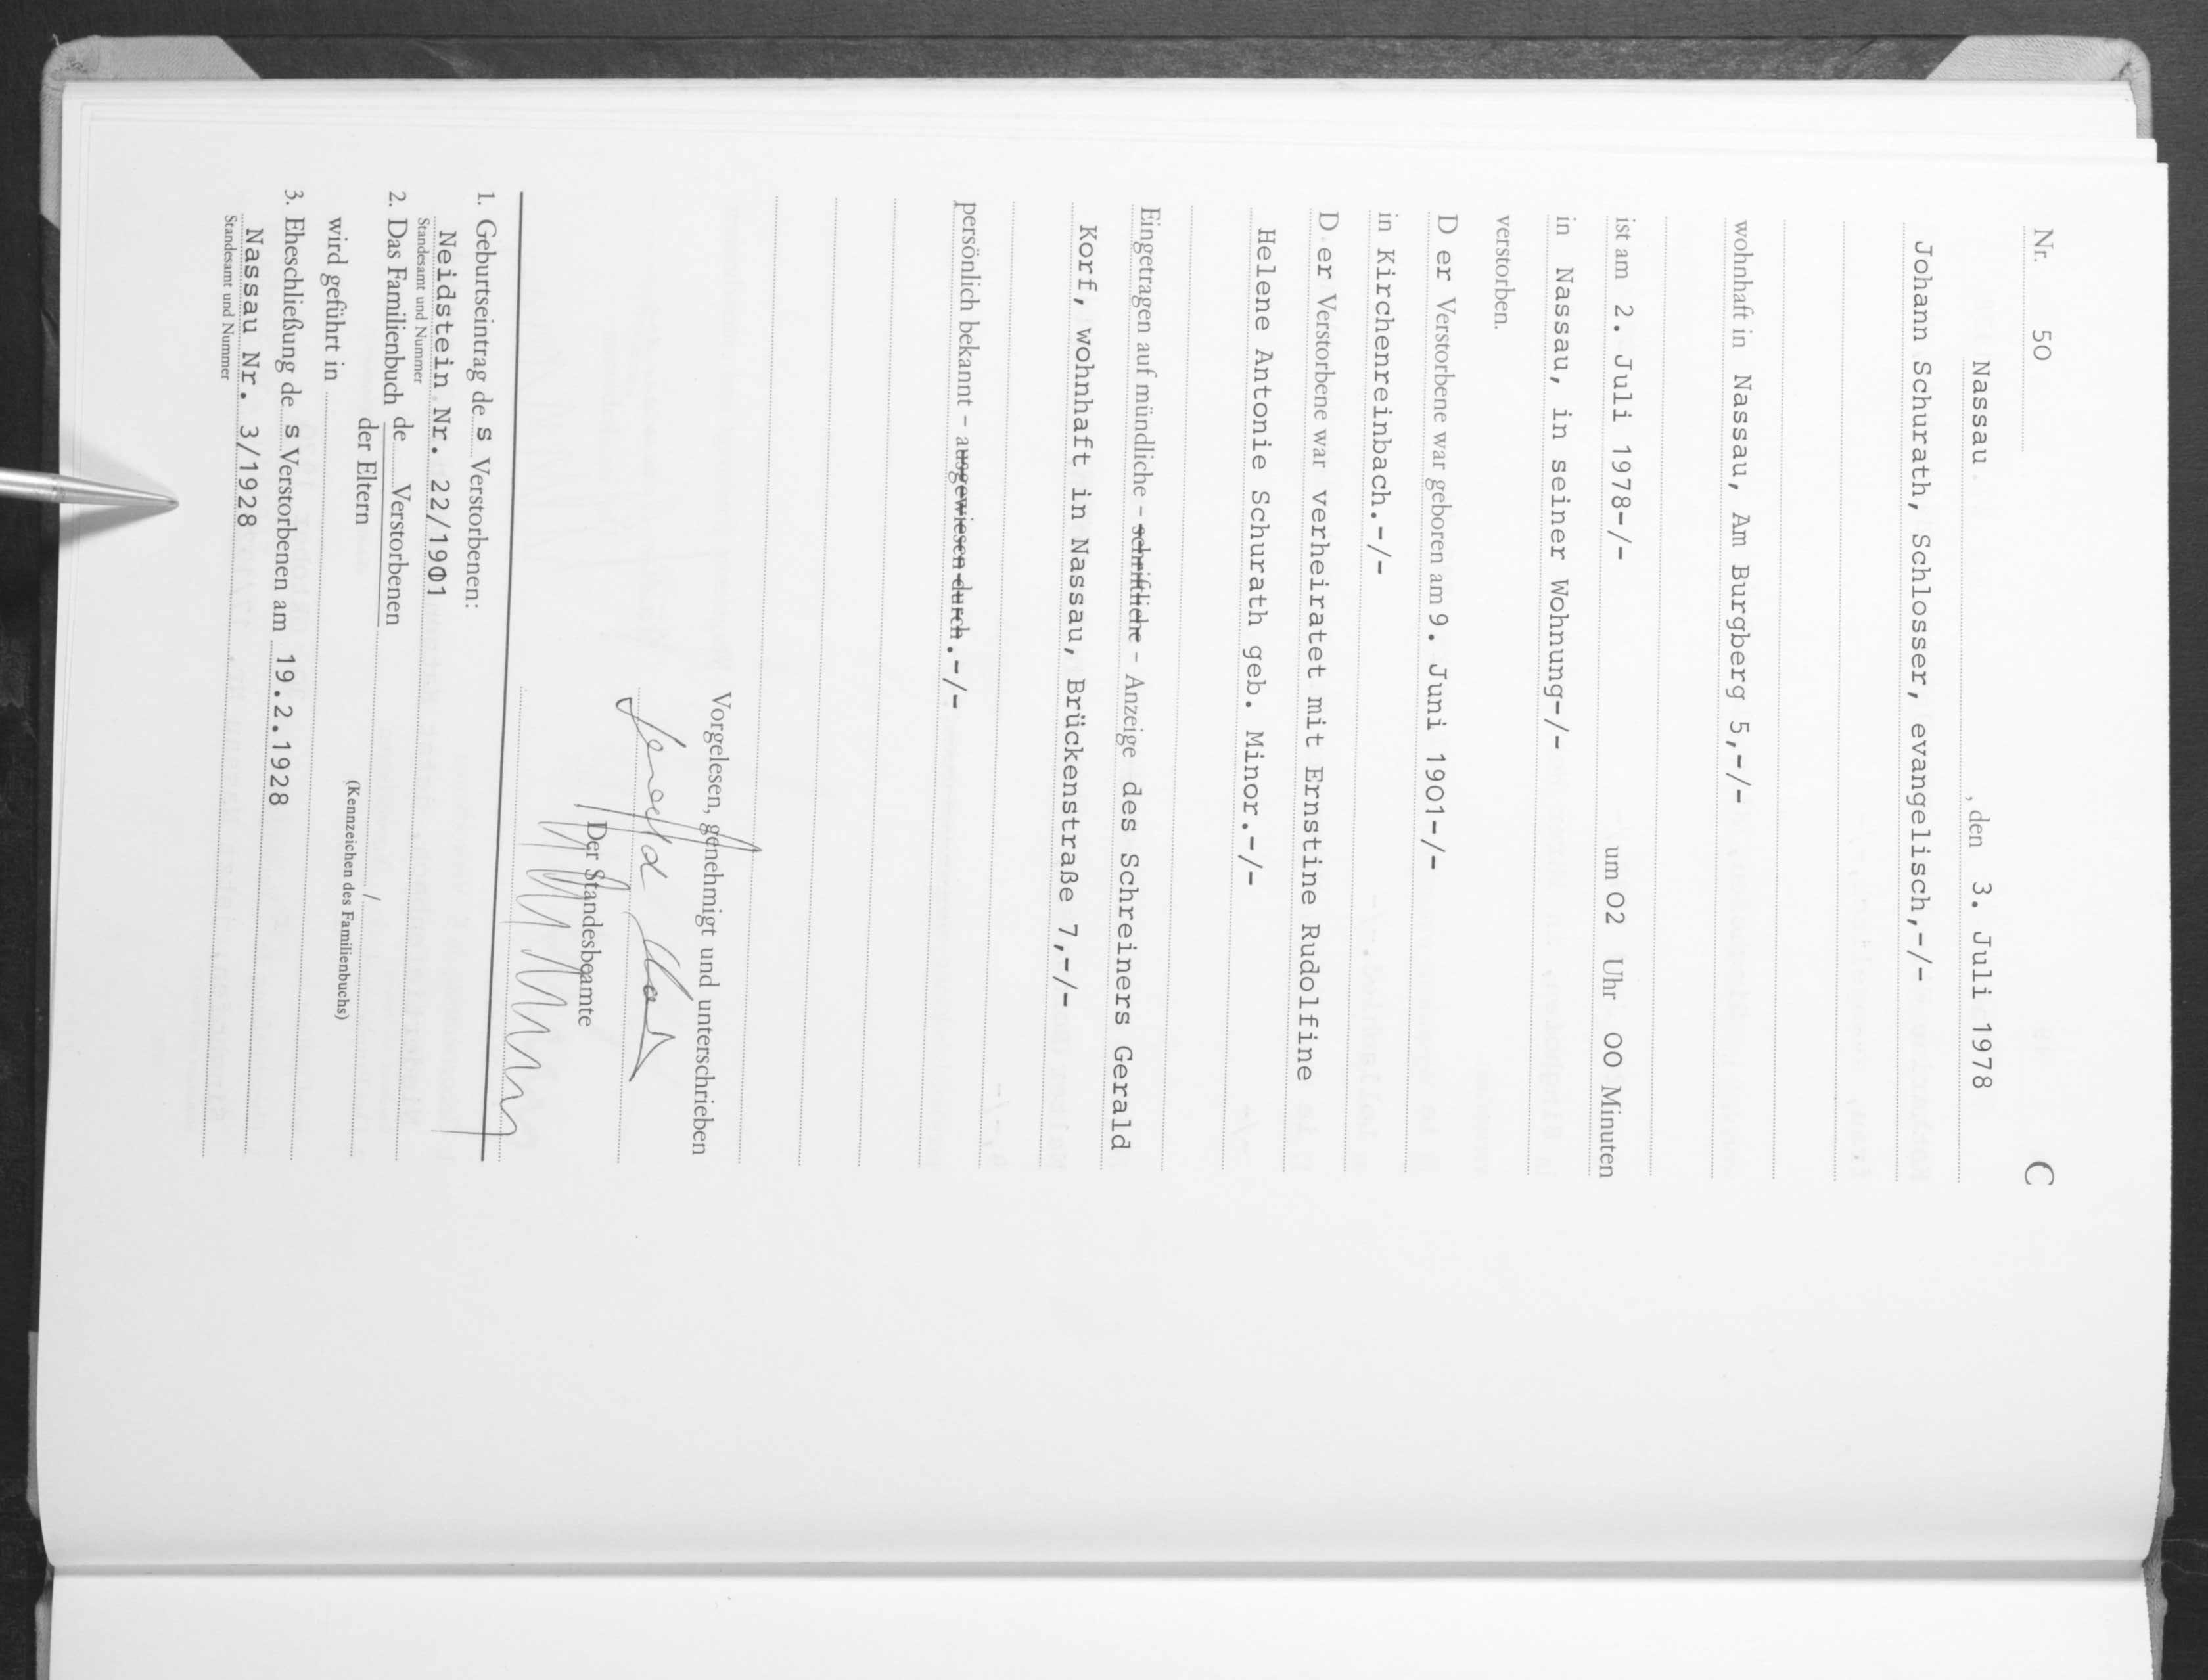 Nr. 50 C
Nassau, den 3. Juli 1978
Johann Schurath, Schlosser, evangelisch,-/-
wohnhaft in Nassau, Am Burgberg 5,-/-
ist am 2. Juli 1978-/- um 02 Uhr 00 Minuten
in Nassau, in seiner Wohnung-/-
verstorben.
D er Verstorbene war geboren am 9. Juni 1901-/-
in Kirchenreinbach.-/-
D er Verstorbene war verheiratet mit Ernstine Rudolfine
Helene Antonie Schurath geb. Minor.-/-
Eingetragen auf mündliche - schriftliche - Anzeige des Schreiners Gerald
Korf, wohnhaft in Nassau, Brückenstraße 7,-/-
persönlich bekannt - ausgewiesen durch.-/-
Vorgelesen, genehmigt und unterschrieben
Der Standesbeamte
1. Geburtseintrag de s Verstorbenen:
Neidstein Nr. 22/1901
Standesamt und Nummer
2. Das Familienbuch de Verstorbenen
der Eltern
wird geführt in /
(Kennzeichen des Familienbuchs)
3. Eheschließung de s Verstorbenen am 19.2.1928
Nassau Nr. 3/1928
Standesamt und Nummer